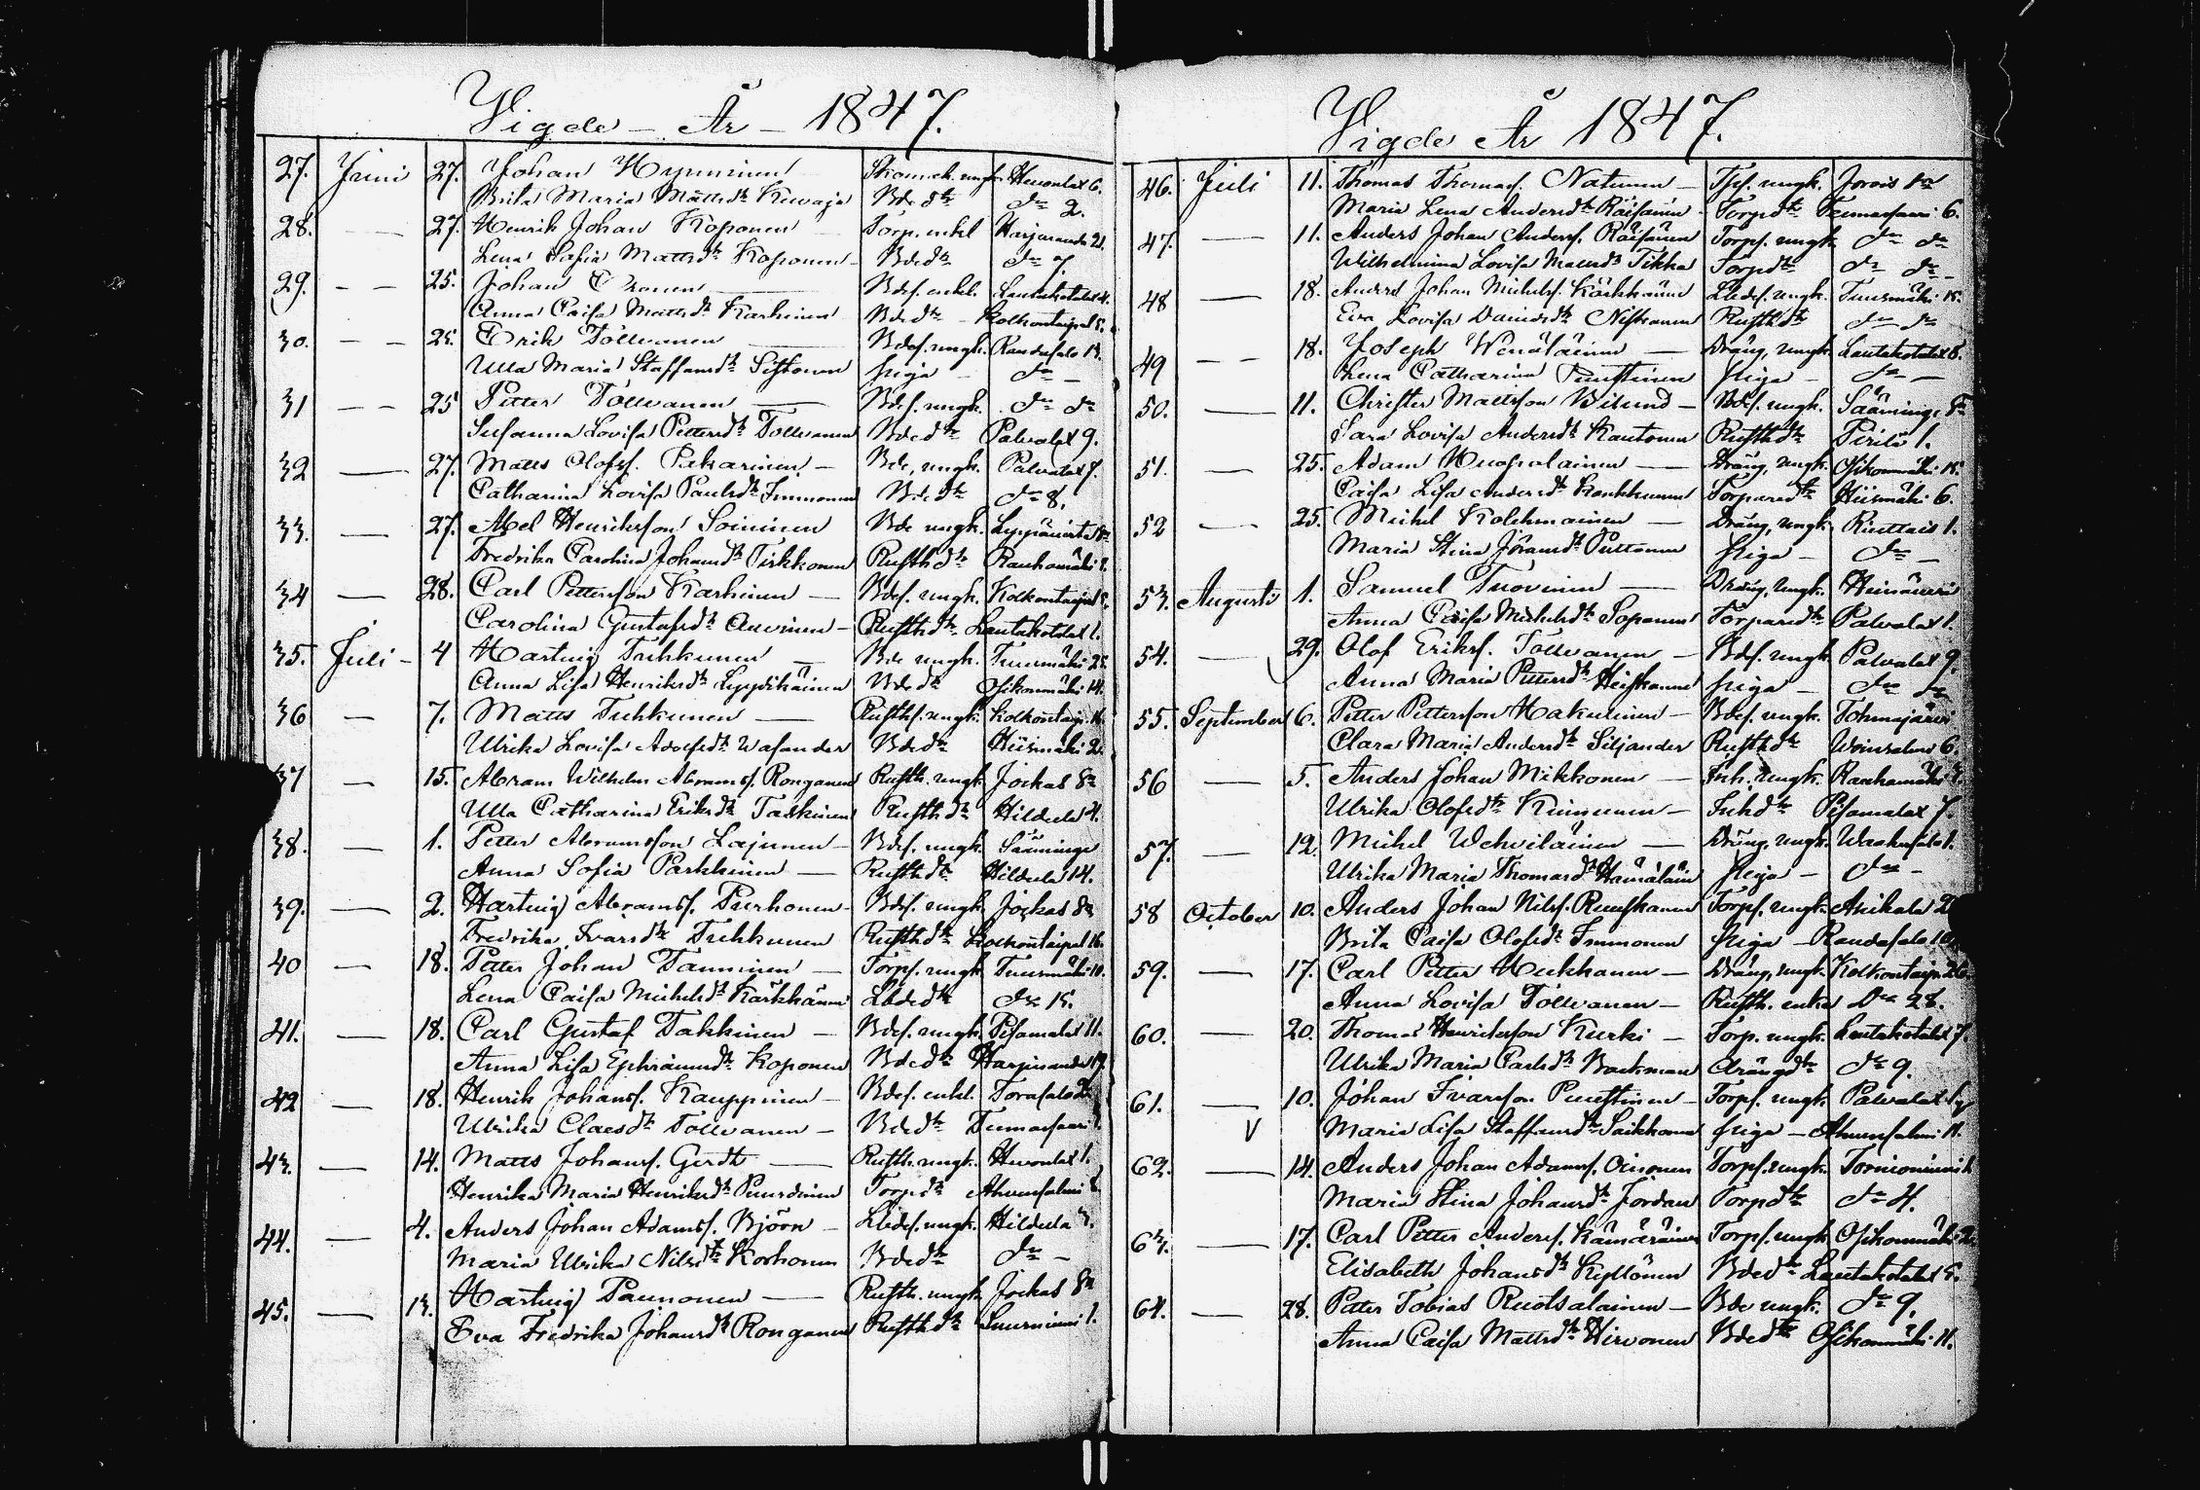 Vigde - År - 1847.
27. Juni 27. Johan Hynninen Skomak. ungk. Huvonlax 6.
Brita Maria Mattsdr Kuvaja Bdedtr do 2.
28. — 27. Henrik Johan Koponen Torp. enkl Harjuranda 21.
Lena Sofia Mattsdr Koponen Bdedtr do 7.
29. - - 25. Johan Bdes. enkl. Lautakotalax 4.
Anna Caisa Mattsdr Karhinen Bdedtr Kolkontaipal 5.
30. - - 25. Erik Tollvanen Bdes. ungk. Randasalo 13.
Ulla Maria Staffansdr Siftonen piga do -
31 - - 25 Petter Tollvanen Bdes. ungk. do do
Susanna Lovisa Pettersdr Tollvanen Bdedtr Palvalax 9.
32 — 27. Matts Olofss. Pakarinen - Bde, ungk. Palvalax 7.
Catharina Lovisa Paulsdr Immonen Bdedtr do 8.
33. — 27. Abel Henriksson Soininen Bde ungk.
Fredrika Carolina Johansdr Tirkkonen Rusthdtr Rauhamäki 2.
34 — 28. Carl Pettersson Karhinen - Bdes. ungk. Kolkontaipal
Carolina Gustafsdr Auvinen - Rusthdtr Lautakotalax 1.
35. Juli - 4 Hartvig Tuhkunen Bde ungk. Tuusmäki 25.
Anna Lisa Henriksdr Lyytikäinen Bdedtr Osikonmäki 14.
36 — 7. Matts Tuhkunen — Rusths. ungk. Kolkontaip. 16.
Ulrika Lovisa Adolfsdr Wasander Bdedtr Hiismäki 2.
37 — 15. Abram Wilhelm Abramss. Ronganen Rusth. ungk. Jockas Sn
Ulla Catharina Eriksdr Taskinen Rusthdtr Hildula 4.
38. — 1. Petter Abramsson Lajunen - Bdes. ungk. Sääminge
Anna Sofia Parkkinen — Rusthdtr Hildula 14.
39. — 2. Hartvig Abramss. Purhonen - Bdes. ungk. Jockas Sn
Fredrika Ivarsdr Tuhkunen Rusthdtr Kolkontaipal 16.
40 — 18. Petter Johan Tanninen — Torps. ungk. Tuusmäki 10.
Lena Caisa Michelsdr Kärkkäinen Lbdedtr do 15.
41. — 18. Carl Gustaf Takkinen — Bdes. ungk. Pisamalax 11.
Anna Lisa Ephraimsdr Koponen Bdedtr Harjuranda 19.
42 — 18. Henrik Johanss. Kauppinen - Bdes. enkl. Torasalo 2.
Ulrika Claesdr Tollvanen - Bdedtr Tuunassaari
43. — 14. Matts Johanss. Gerdt — Rusth. ungk. Huvonlax 1.
Henrika Maria Henriksdr Torpdtr Ahvensalmi
44. — 4. Anders Johan Adamss. Björn - Lbdes. ungk. Hildula 3.
Maria Ulrika Nilsdtr Korhonen Bdedtr do -
45. — 13. Hartvig Paunonen — Rusth. ungk. Jockas Sn
Eva Fredrika Johansdr Ronganen Rusthdtr Suurniemi 1.
Vigde År 1847.
46. Juli 11. Thomas Thomass. Natunen - Tps. ungk. Jorois Sn
Maria Lena Andersdtr Räisänen - Torpdtr Tuunassaari 6.
47. — 11. Anders Johan Anderss. Räisänen Torps. ungk. do do
Wilhelmina Lovisa Mattsdr Tikka Torpdtr do do -
48 — 18. Anders Johan Michelss. Kärkkäinen Lbdes. ungk. Tuusmäki 15.
Eva Lovisa Danielsdr Niskanen Rusthdtr do do
49 - - 18. Joseph Wenäläinen — Dräng, ungk. Lautakotalax 8.
Lena Catharina Punstinen piga - do -
50. — 11. Christer Mattsson Bilund - Bdes. ungk. Sääminge Sn
Sara Lovisa Andersdtr Kautonen Rusthdtr Pirilä 1.
51. — 25. Adam Kuopalainen — Dräng, ungk. Osikonmäki 15.
Caisa Lisa Andersdtr Kankkunen Torparedtr Hiismäki 6.
52 — 25. Michel Kolehmainen — Dräng, ungk. 1.
Maria Stina Jöransdtr Puttonen piga - do -
53. Augusti 1. Samuel Tuovinen — Dräng, ungk. Heinävesi
Anna Caisa Michelsdr Soponen Torparedtr Palvalax 1.
54. — 29. Olof Erikss. Tollvanen - Bdes. ungk. Palvalax 9.
Anna Maria Pettersdtr Heiskanen piga - do do
55. September 6. Petter Pettersson Hakulinen - Bdes. ungk. Tohmajärvi
Clara Maria Andersdtr Siljander Rusthdtr Voinsalmi 6.
56 — 5. Anders Johan Mikkonen — Inh. ungk. Rauhamäki
Ulrika Olofsdtr Kinnunen - Inhdtr Pisamalax 7.
57. — 12. Michel Wehviläinen — Dräng, ungk. 1.
Ulrika Maria Thomasdtr Hämäläin piga - do -
58 October 10. Anders Johan Nilss. Ruuskanen Torps. ungk. Asikala 2
Brita Caisa Olofsdr Immonen piga - Randasalo
59. — 17. Carl Petter Kukkanen - Dräng, ungk. Kolkontaip. 26.
Anna Lovisa Tollvanen - Rusth. enka Do 28.
60. — 20. Thomas Henriksson Kurki - Torp. ungk. Lautakotalax 7.
Ulrika Maria Carlsdr Backman drängdtr do 9.
61. — 10. Johan Ivarsson Punstinen - Torps. ungk. Palvalax
V Maria Lisa Staffansdtr Saikkonen piga - Ahvensalmi 11.
62. — 14. Anders Johan Adamss. Oinonen Torps. ungk. Tornioniemi
Maria Stina Johansdtr Jordan Torpdtr do 4.
63. — 17. Carl Petter Anderss. Kämäräinen Torps. ungk. Osikonmäki 2.
Elisabeth Johansdtr Kyllönen Bdedtr Lautakotalax 5.
64. — 28. Petter Tobias Ruotsalainen - Bde ungk. do 9.
Anna Caisa Mattsdtr Hirvonen Bdedtr Osikonmäki 11.